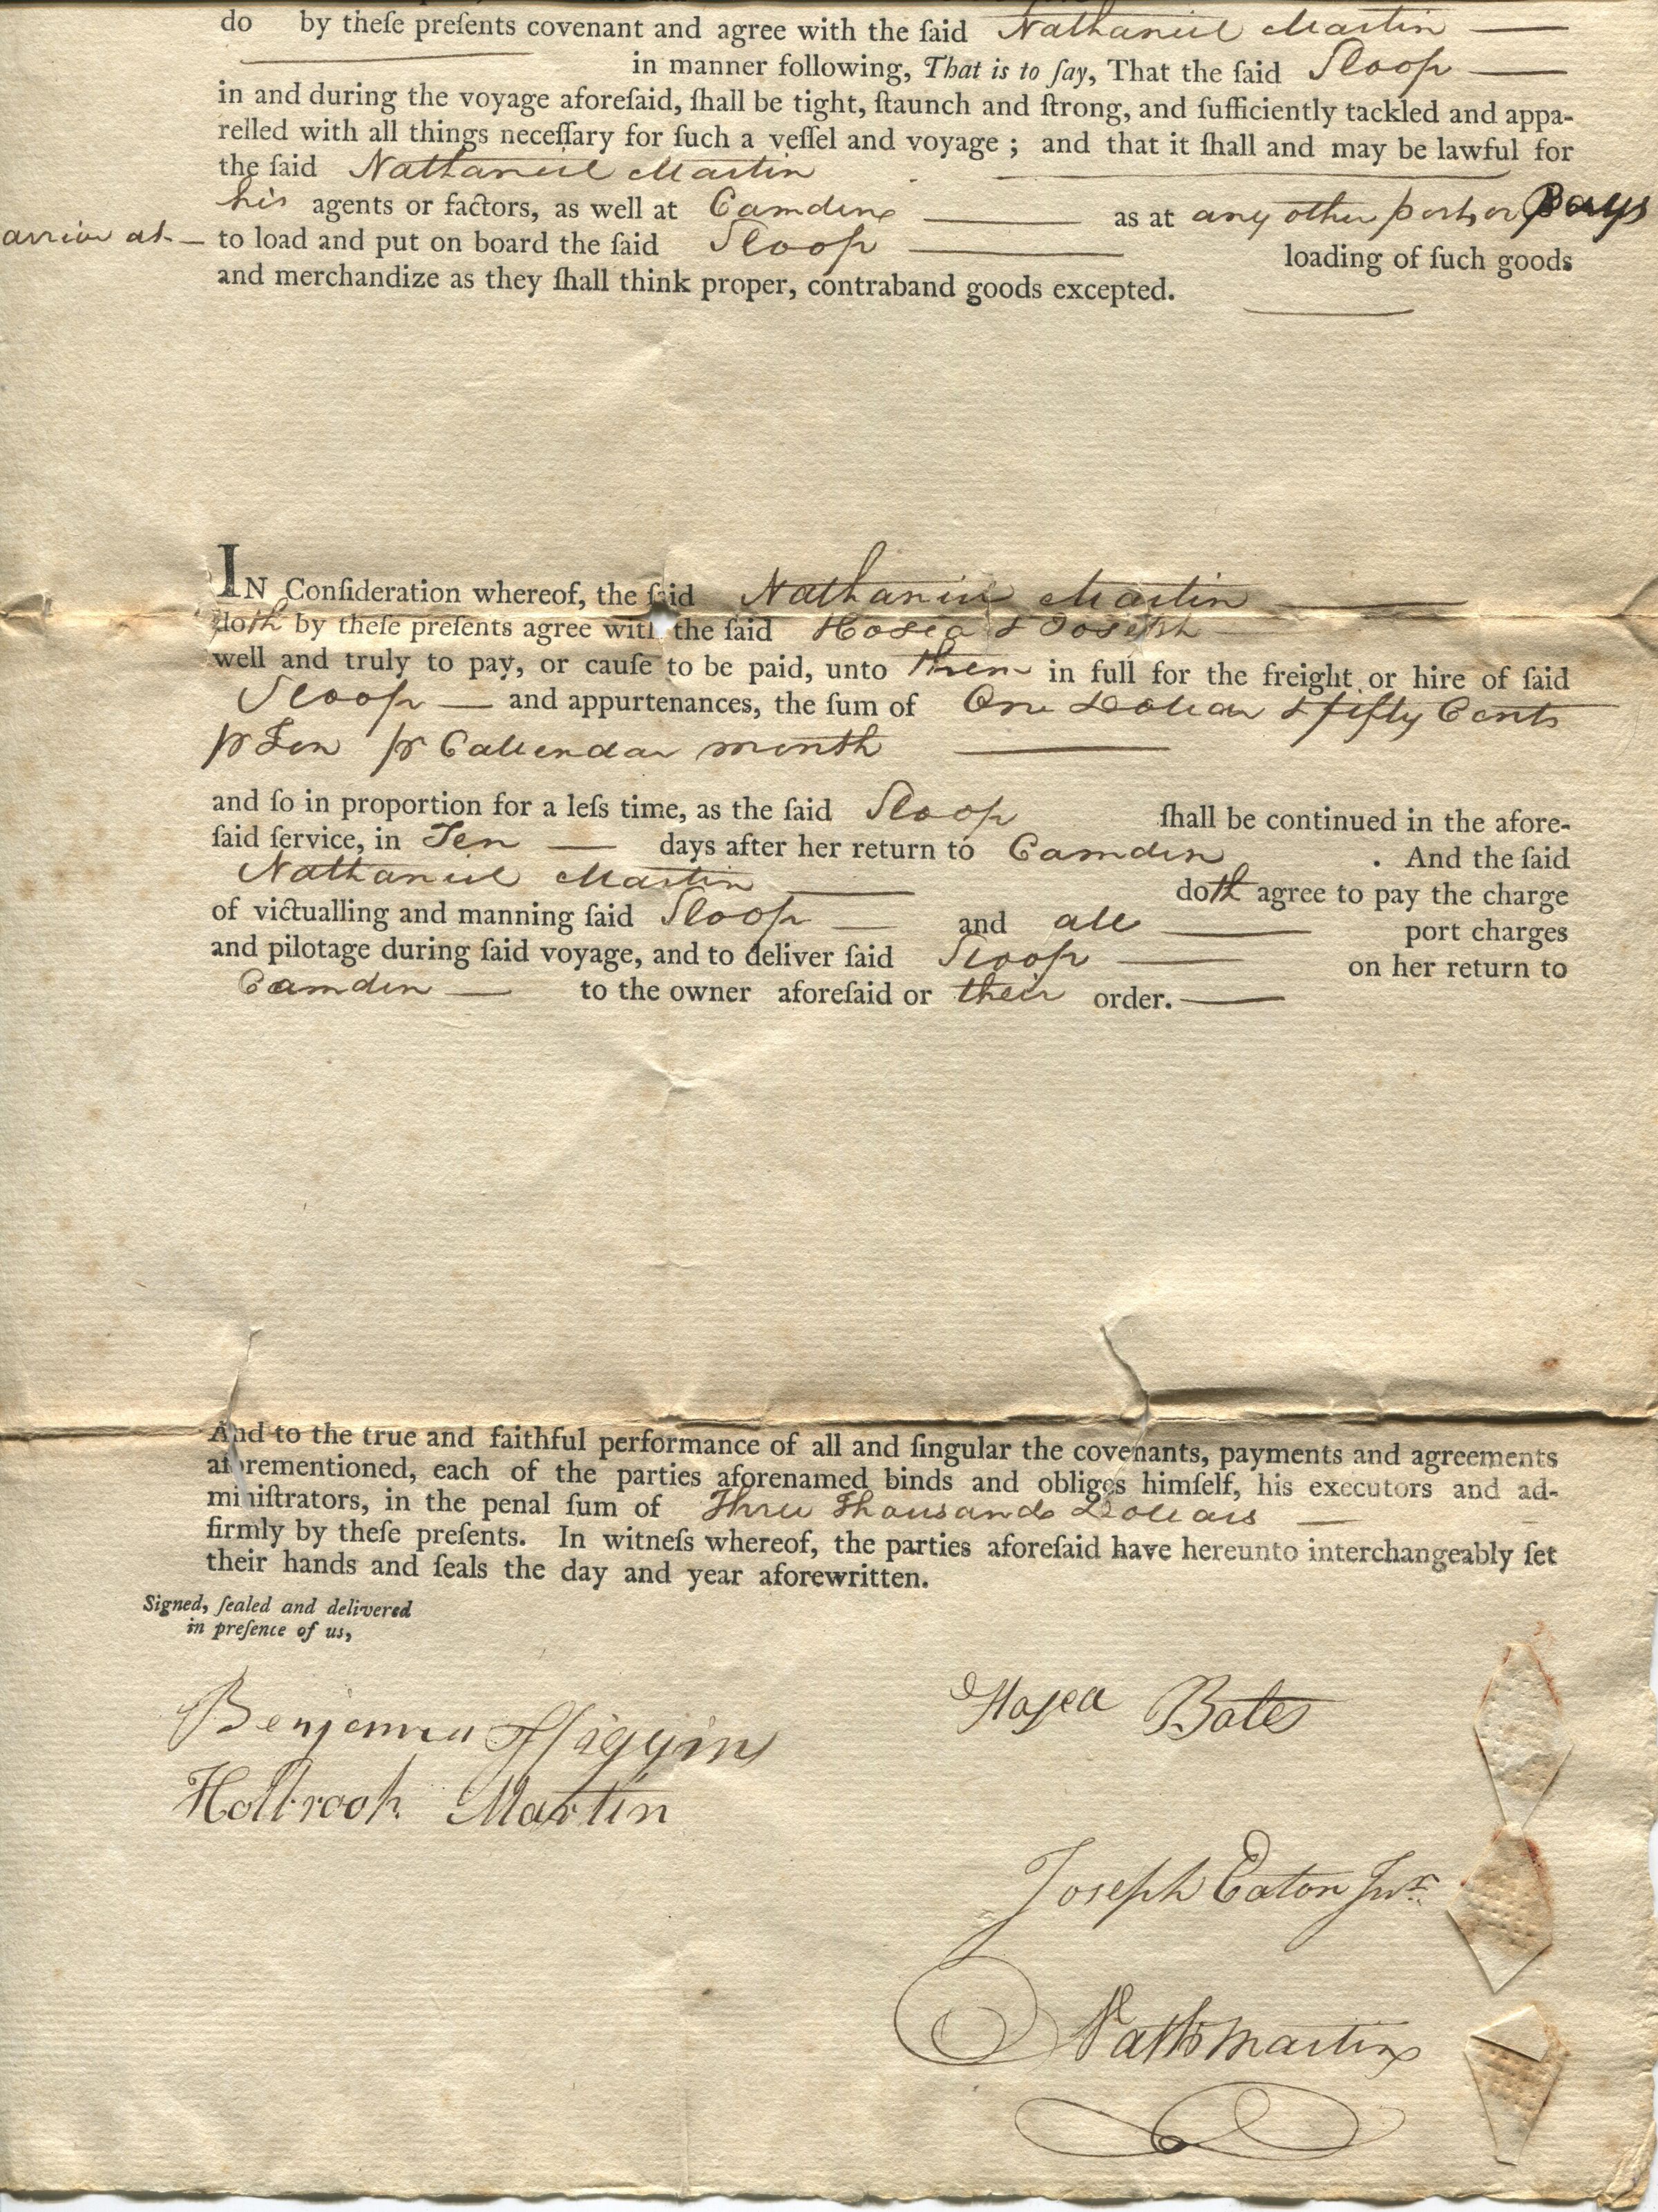 do by theſe preſents covenant and agree with the ſaid Nathaniel Martin
in manner following, That is to ſay, That the ſaid Sloop
in and during the voyage aforeſaid, ſhall be tight, ſtaunch and ſtrong, and ſufficiently tackled and appa-
relled with all things neceſſary for ſuch a veſſel and voyage ; and that it ſhall and may be lawful for
the ſaid Nathaniel Martin
his agents or factors, as well at Camden as at any other port, or Bays
arrive at to load and put on board the ſaid Sloop loading of ſuch goods
and merchandize as they ſhall think proper, contraband goods excepted.
IN Conſideration whereof, the ſaid Nathaniel Martin
doth by theſe preſents agree with the ſaid Hosea & Joseph
well and truly to pay, or cauſe to be paid, unto them in full for the freight or hire of ſaid
Sloop and appurtenances, the ſum of One Dollar & fifty Cents
pr Ton pr Callendar month
and ſo in proportion for a leſs time, as the ſaid Sloop ſhall be continued in the afore-
ſaid ſervice, in Ten days after her return to Camden . And the ſaid
Nathaniel Martin doth agree to pay the charge
of victualling and manning ſaid Sloop and all port charges
and pilotage during ſaid voyage, and to deliver ſaid Sloop on her return to
Camden to the owner aforeſaid or their order.
And to the true and faithful performance of all and ſingular the covenants, payments and agreements
aforementioned, each of the parties aforenamed binds and obliges himſelf, his executors and ad-
miniſtrators, in the penal ſum of Three Thousands Dollars
firmly by theſe preſents. In witneſs whereof, the parties aforeſaid have hereunto interchangeably ſet
their hands and ſeals the day and year aforewritten.
Signed, ſealed and delivered
in preſence of us,
Benjamin Higgins
Holbrook Martin
Hosea Bates
Joseph Eaton Junr.
Nathl Martin